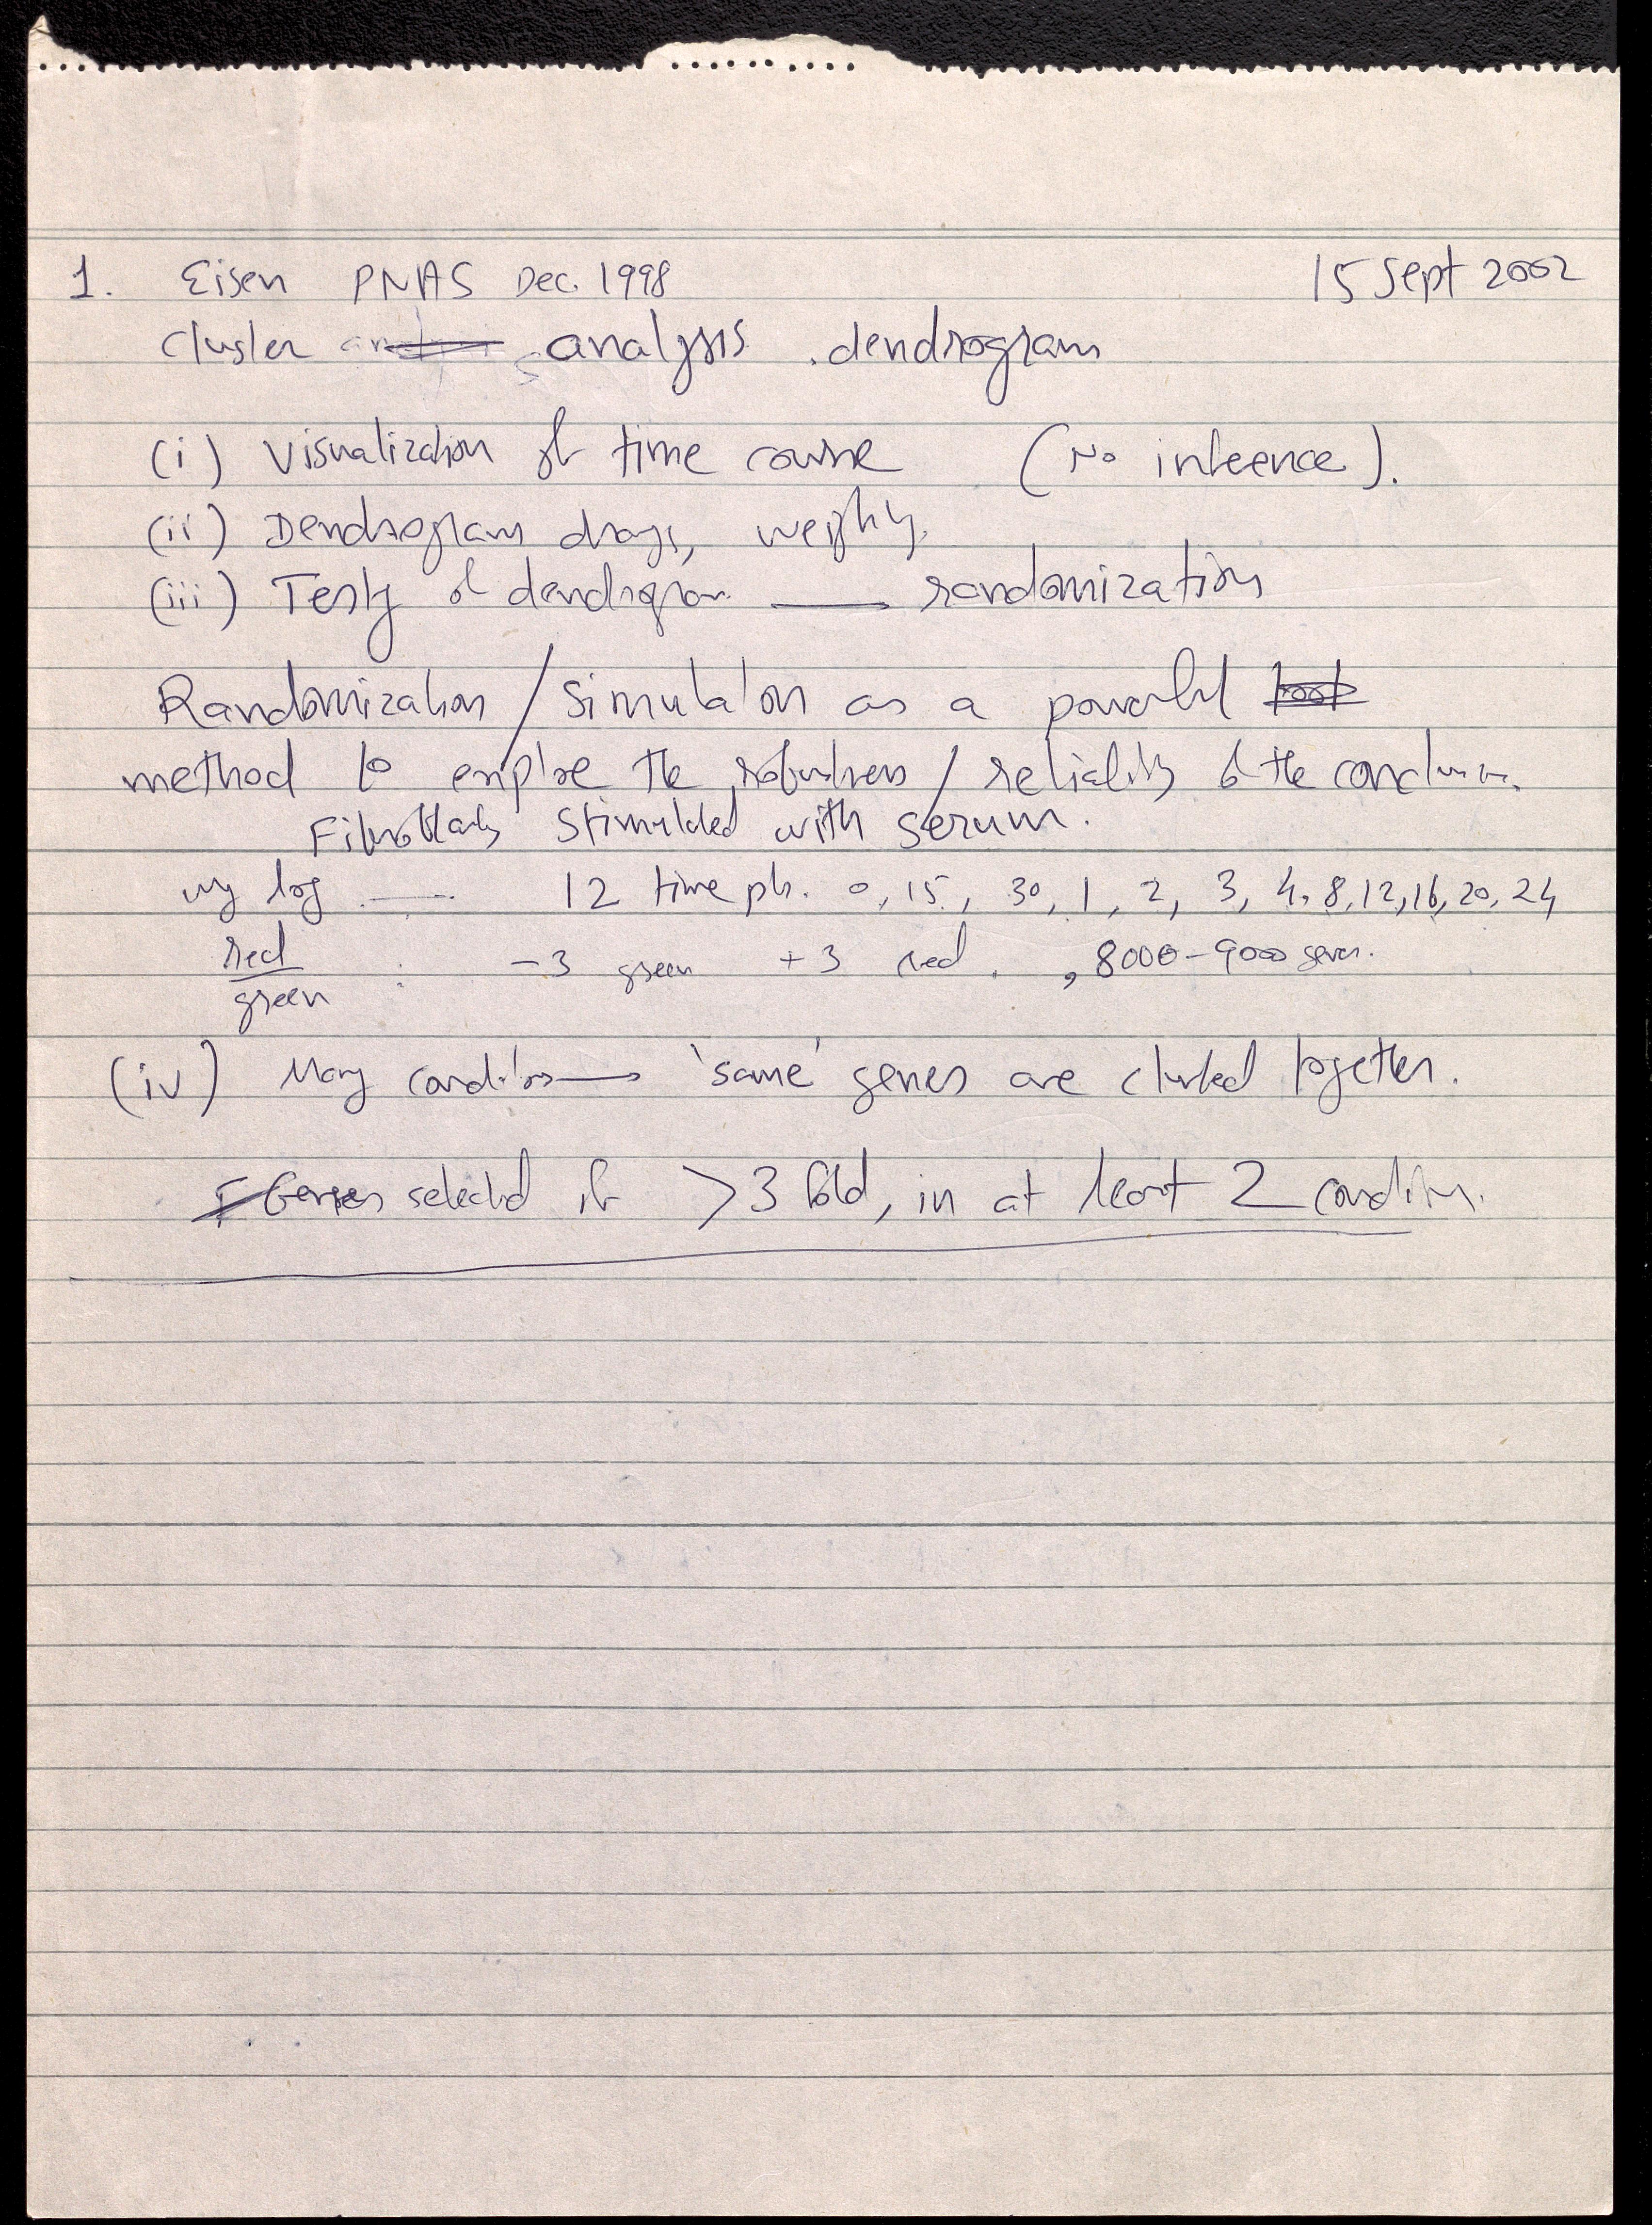 1. Eisen PNAS Dec. 1998 15 Sept 2002
Cluster analysis . dendrogram
(i) Visualization of time course (No inference).
(ii) Dendrogram
(iii) Testg of dendrogram —— randomization
Randomization / simulation as a powerful tool
method to explore the robustness / reliability of the conclusion.
Fibroblasts stimulated with serum.
log —— 12 time pts. 0, 15, 30, 1, 2, 3, 4, 8, 12, 16, 20, 24
red
green : -3 green +3 red. , 8000-9000 genes.
(iv) Many conditions → 'same' genes are clustered together.
Genes selected if >3 fold, in at least 2 conditions.